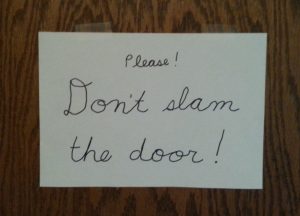 Please!
Don't slam
the door!